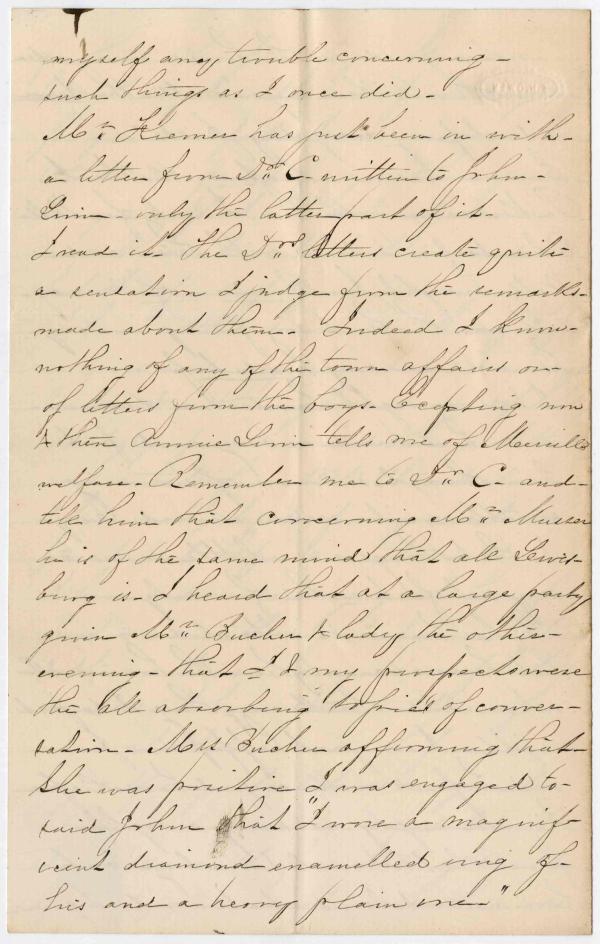 myself any trouble concerning -
such things as I once did -
Mr. Kremer has just been in with -
a letter from Dr. C - written to John -
Linn - only the latter part of it -
I read it - The Drs letters create quite
a sensation I judge from the remarks -
made about them - Indeed I know -
nothing of any of the town affairs or -
of letters from the boys - Excepting now
& then Annie Linn tells me of Merrill's
welfare - Remember me to Dr. C - and -
tell him that concerning Mr. Musser
he is of the same mind that all Lewis-
burg is - I heard that at a large party
given Mr. Bucher & lady the other -
evening - that I & my prospects were
the all absorbing topics of conver-
sation - Mrs Bucher affirming that -
she was positive I was engaged to -
said John that "I wore a magnif-
icent diamond enamelled ring of -
his and a heavy plain one - "